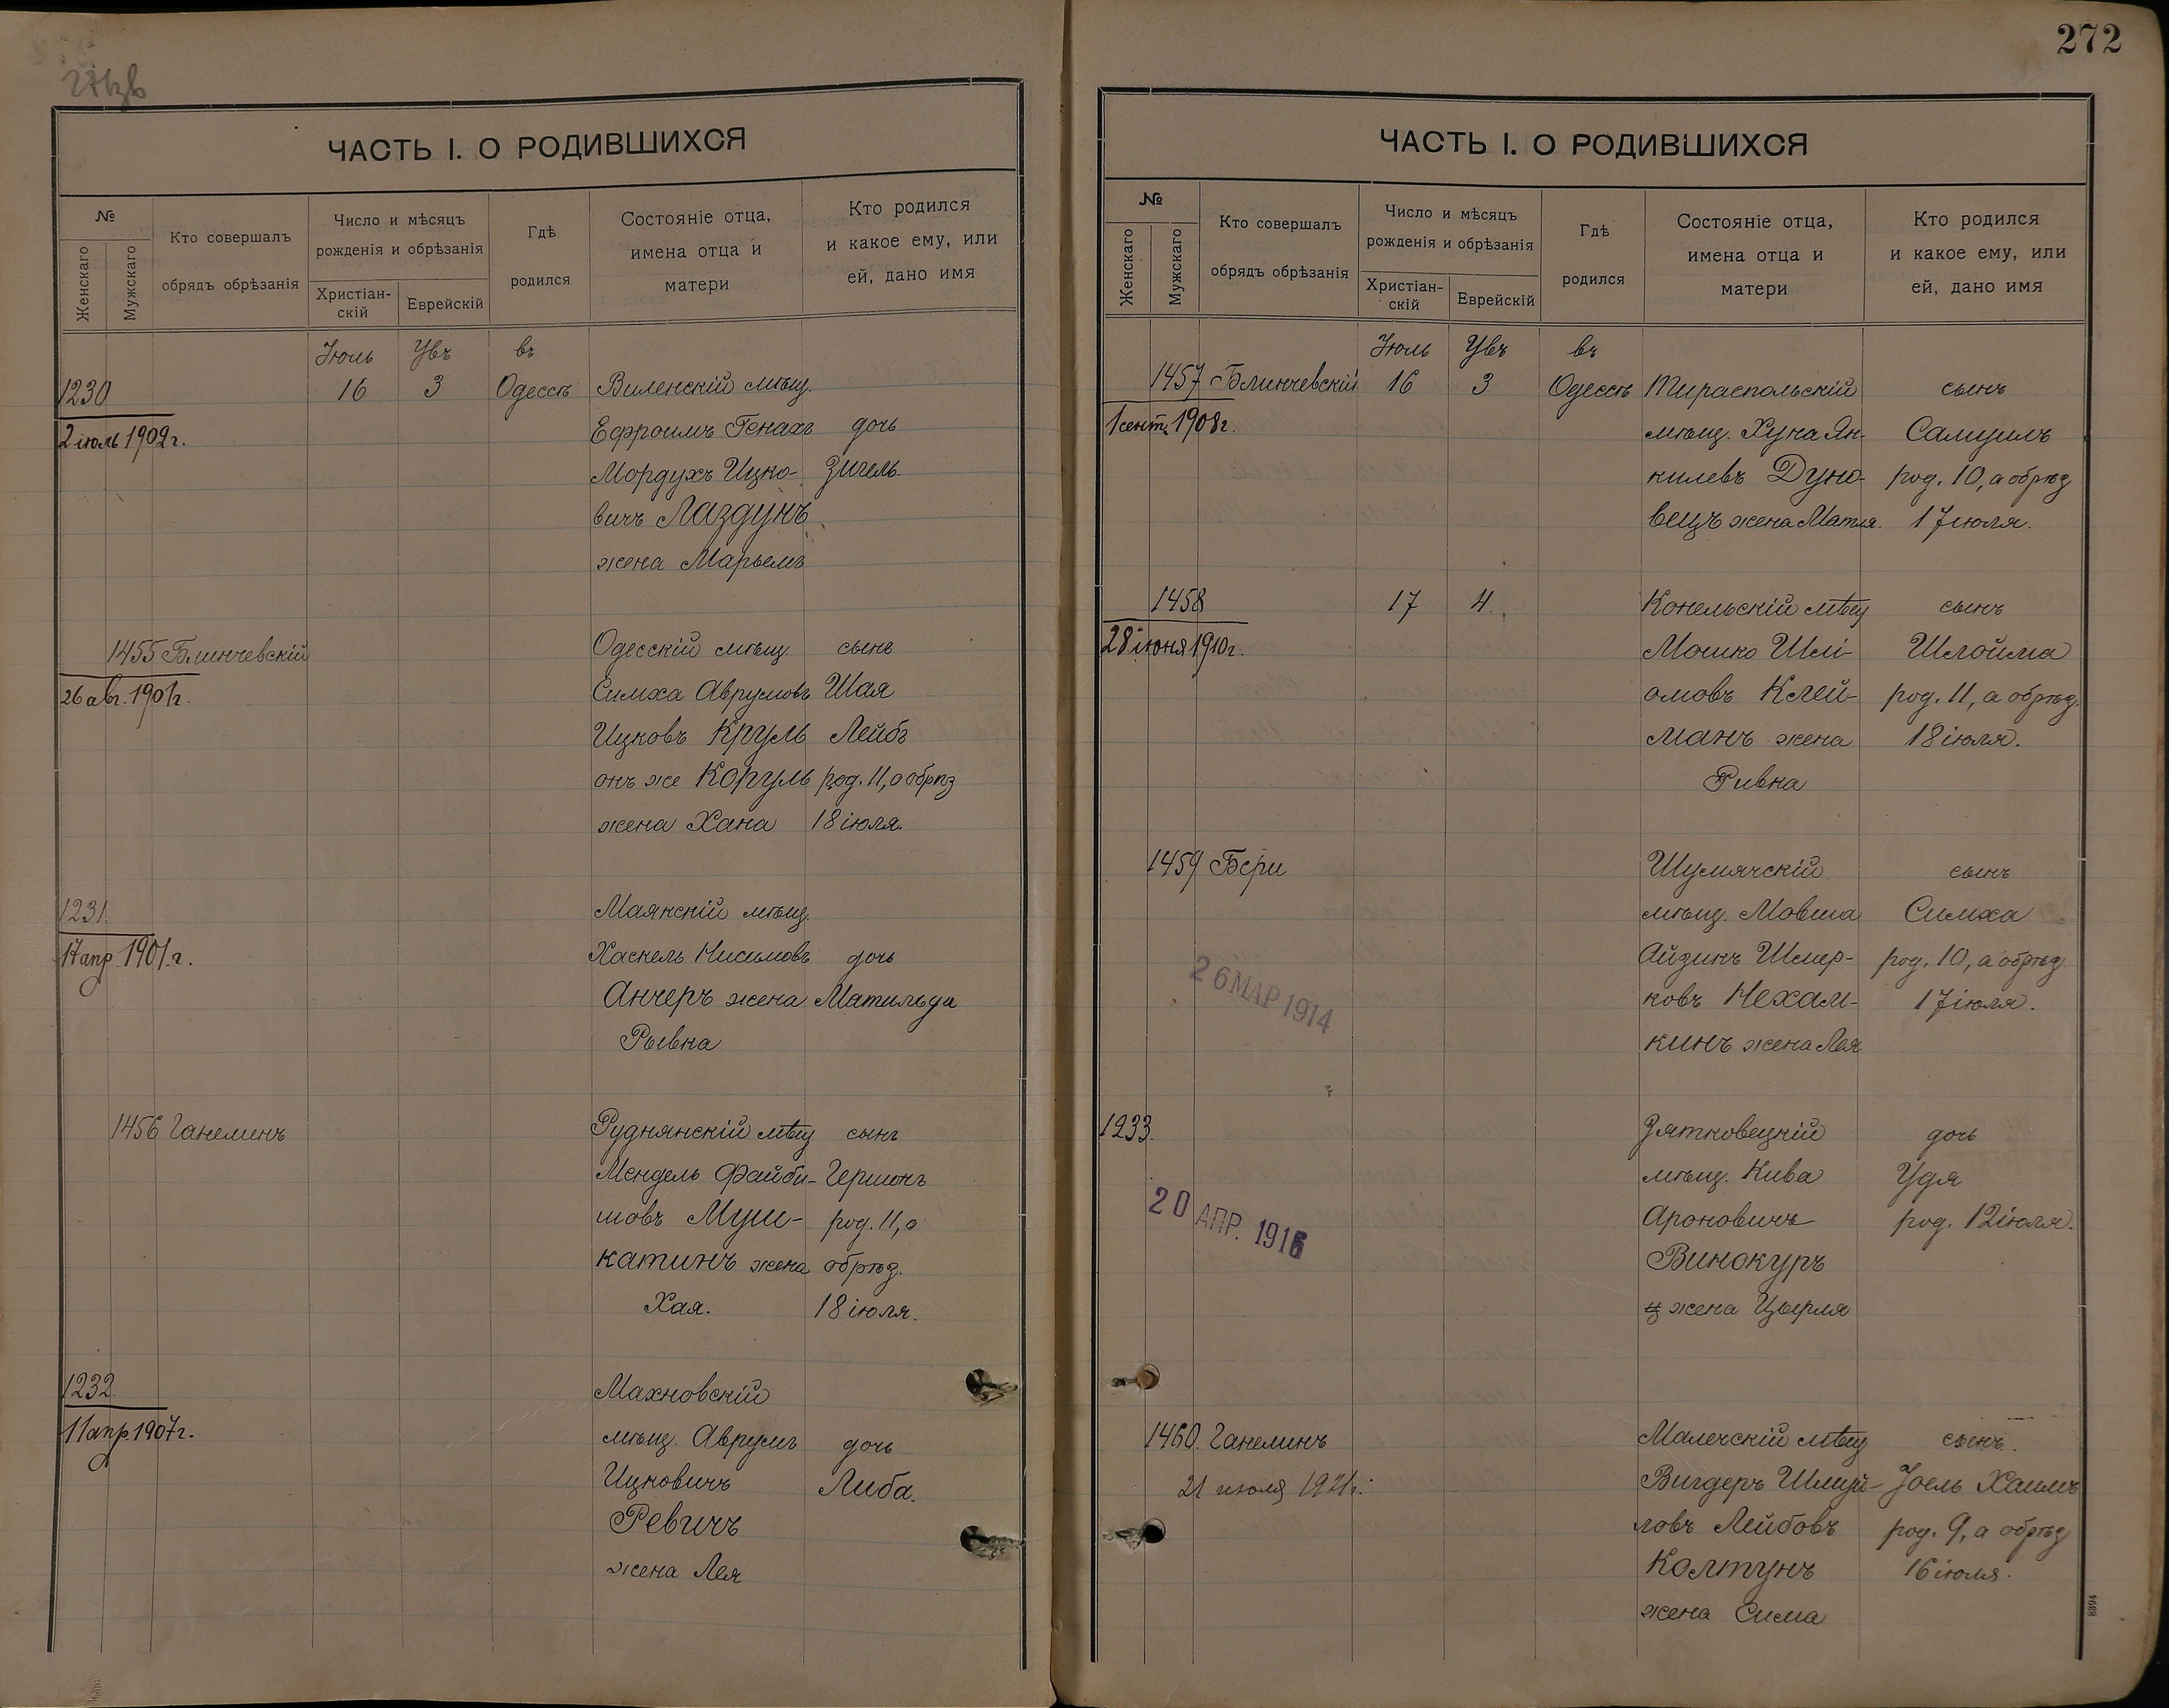 ЧАСТЬ I. О РОДИВШИХСЯ
№
Женскаго
Мужскаго
Кто совершалъ
обрядъ обрѣзанія
Число и мѣсяцъ
рожденія и обрѣзанія
Христіан-
скій
Еврейскій
Гдѣ
родился
Состояніе отца,
имена отца и
матери
Кто родился
и какое ему, или
ей, дано имя
Іюль Увъ въ
1230 16 3 Одессѣ Виленскій мѣщ.
2 іюль 1902 г. Ефроимъ Генахъ дочь
Мордухъ Ицко- Зисель
вичъ Лаздунъ
жена Марьемъ
1455 Блинчевскій Одесскій мѣщ. сынъ
26 авг. 1901 г. Симха Аврумовъ Шая
Ицковъ Круль Лейбъ
онъ же Коруль род. 11, а обрѣз
жена Хана 18 іюля.
1231 Маякскій мѣщ.
17 апр. 1901 г. Хаскель Нисимовъ дочь
Анчеръ жена Матильда
Рывка
1456 Ганелинъ Руднянскій мѣщ сынъ
Мендель Файби- Гершонъ
шовъ Муш- род. 11, а
катинъ жена обрѣз.
Хая. 18 іюля.
1232 Махновскій
11 апр. 1907 г. мѣщ. Аврумъ дочь
Ицковичъ Либа.
Ревичъ
жена Лея
272
ЧАСТЬ I. О РОДИВШИХСЯ
№
Женскаго
Мужскаго
Кто совершалъ
обрядъ обрѣзанія
Число и мѣсяцъ
рожденія и обрѣзанія
Христіан-
скій
Еврейскій
Гдѣ
родился
Состояніе отца,
имена отца и
матери
Кто родился
и какое ему, или
ей, дано имя
Іюль Увъ въ
1457 Блинчевскій 16 3 Одессѣ Тираспольскій сынъ
1 сент. 1908 г. мѣщ. Хуна Ян- Самуилъ
килевъ Дуно- род. 10, а обрѣз
вецъ жена Матля. 17 іюля.
1458 17 4. Конельскій мѣщ сынъ
28 іюня 1910 г. Мошко Шлі- Шлойма
омовъ Клей- род. 11, а обрѣз.
манъ жена 18 іюля.
Ривка
1459 Бери Шумячскій сынъ
мѣщ. Мовша Симха
Айзикъ Шмер- род. 10, а обрѣз
ковъ Нехам- 17 іюля.
кинъ жена Лея
26 МАР 1914
1233. Зятковецкій дочь
мѣщ. Кива Удя
Ароновичъ род. 12 іюля.
Винокуръ
жена Цырля
20 АПР. 1916
1460. Ганелинъ Малечскій мѣщ сынъ.
21 июля 1921 г. Вигдеръ Шмуй- Іоель Хаимъ
ловъ Лейбовъ род. 9, а обрѣз
Колтунъ 16 іюля.
жена Сима